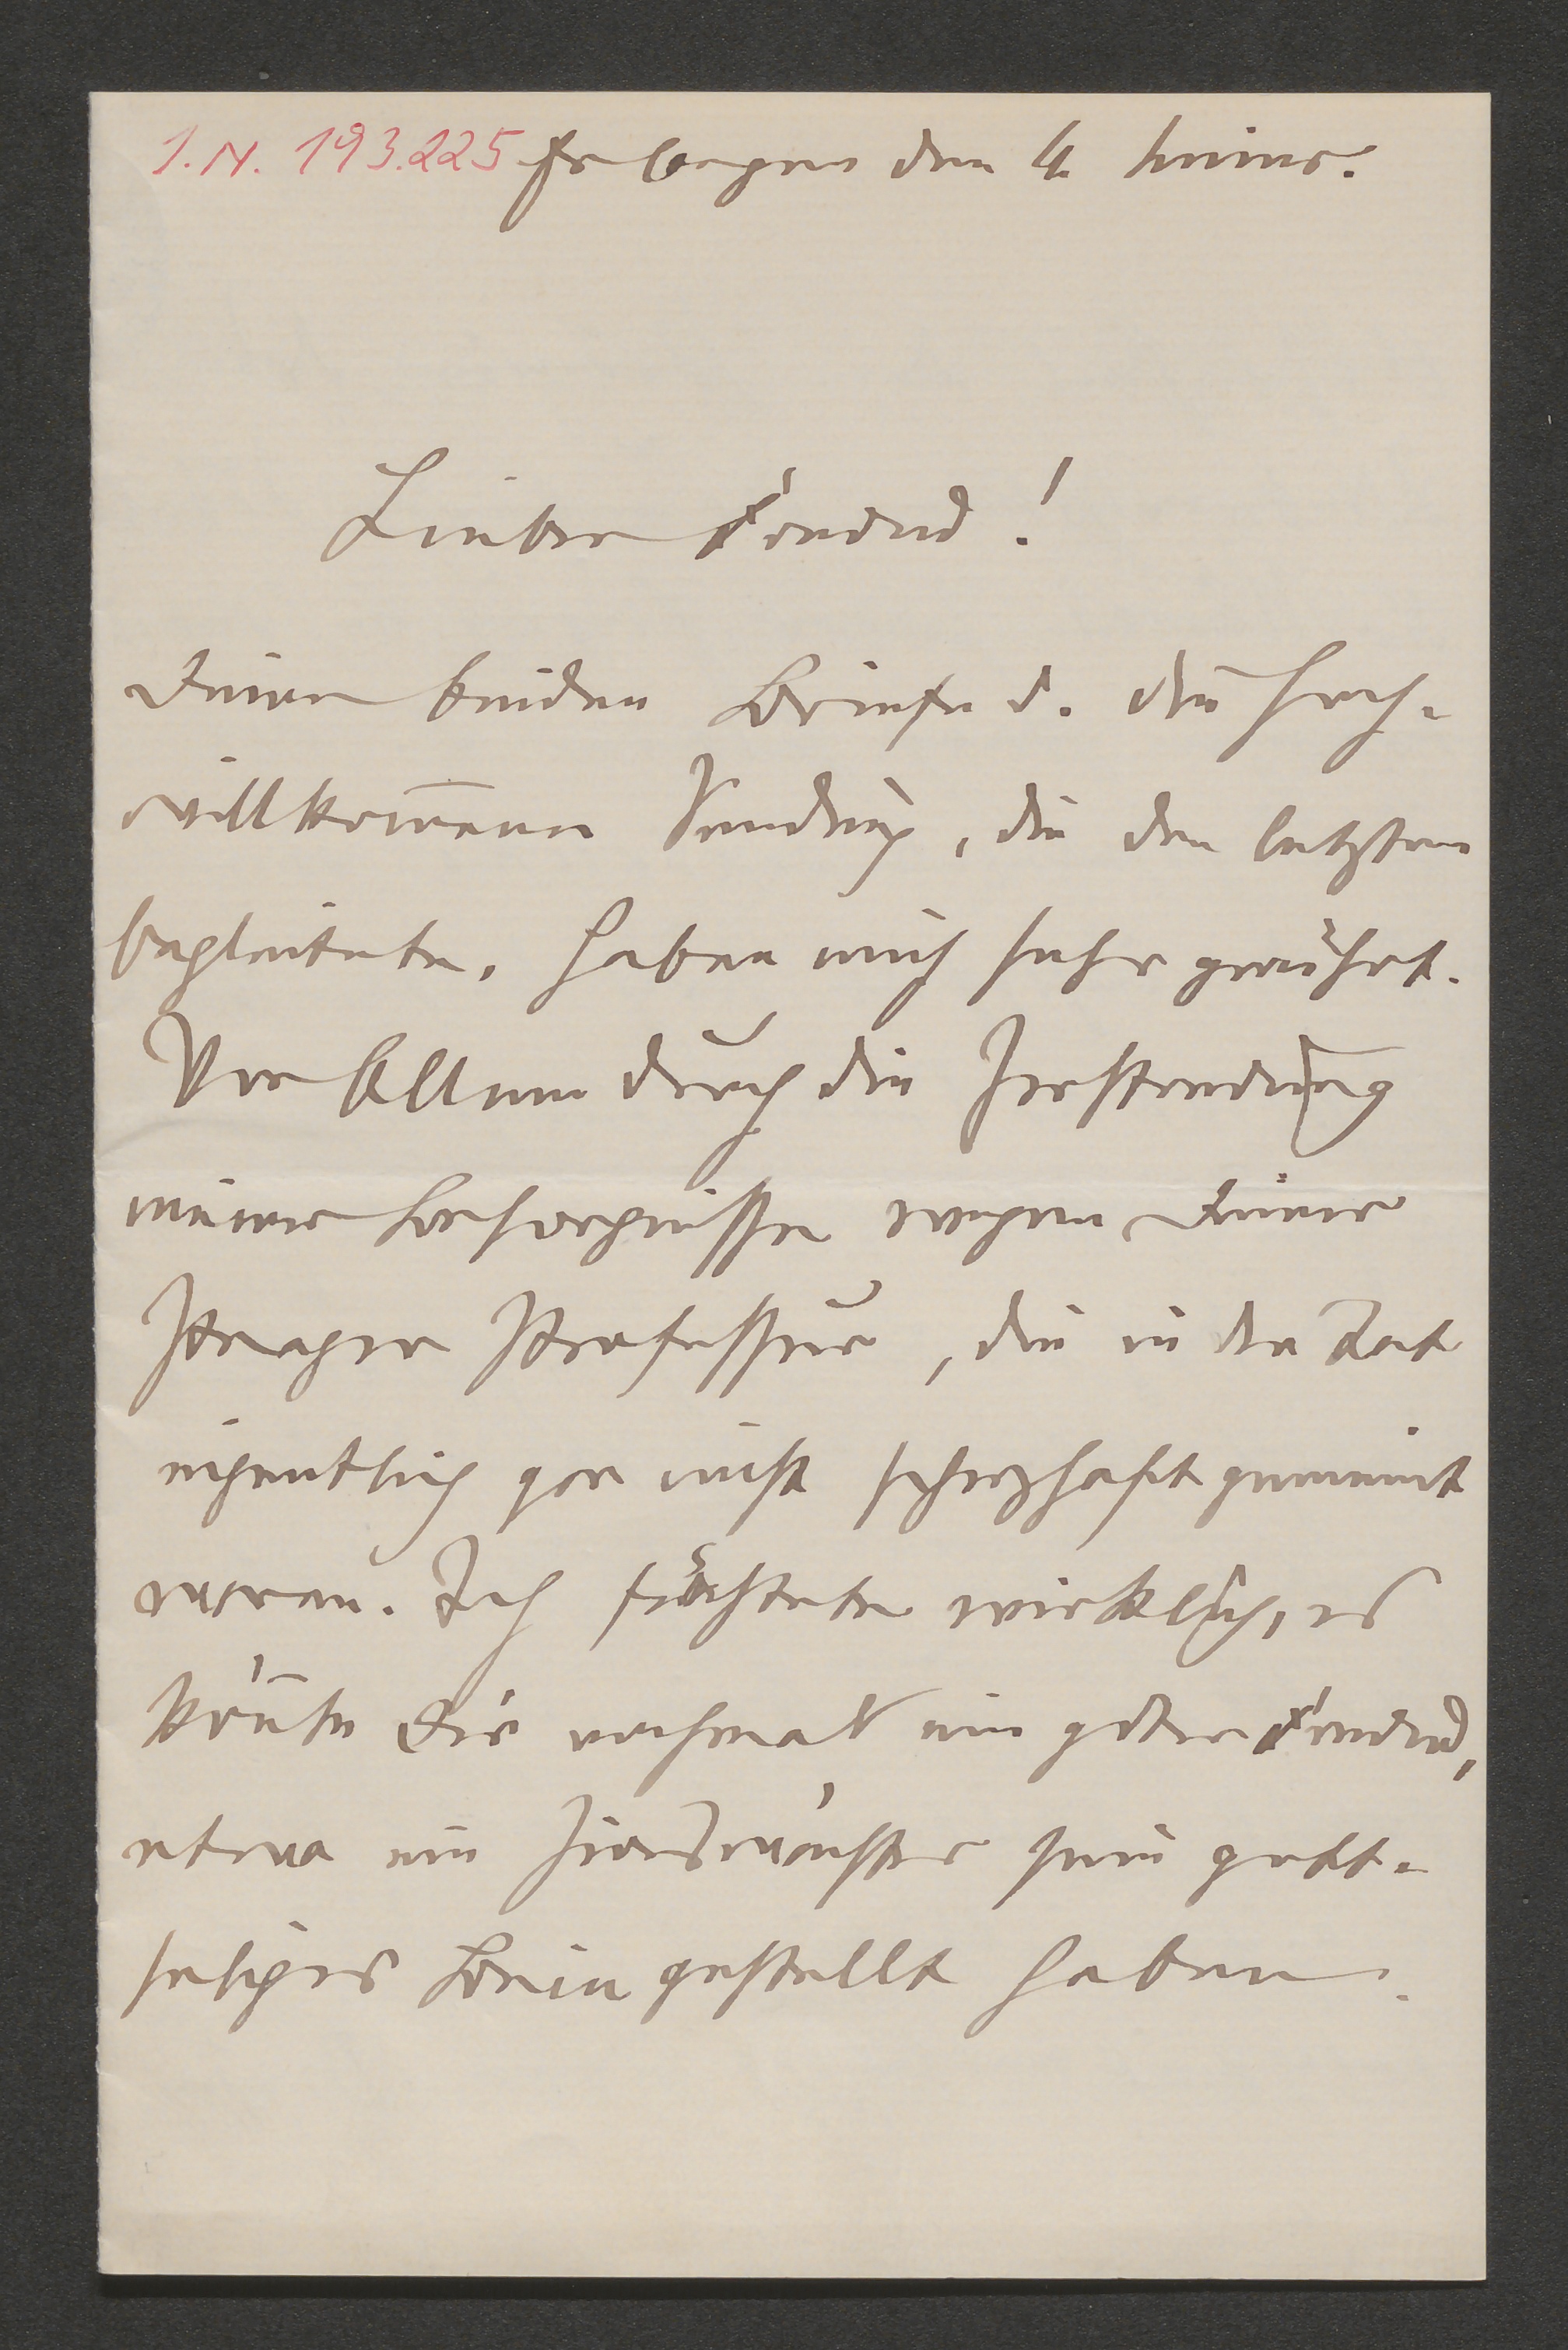 I.N. 193.225 Erlangen den 4. Jänner.
Lieber Freund!
Deine beiden Briefe u. die hoch-
willkommene Sendung, die den letzten
begleitete, haben mich sehr gerührt.
Vor Allem durch die Zerstreuung
meiner Besorgnisse wegen Deiner
Prager Professur, die in der Tat
eigentlich gar nicht scherzhaft gemeint
waren. Ich fürchtete wirklich, es
könnte Dir nochmal ein guter Freund,
etwa ein sein gott-
seliges Bein gestellt haben.